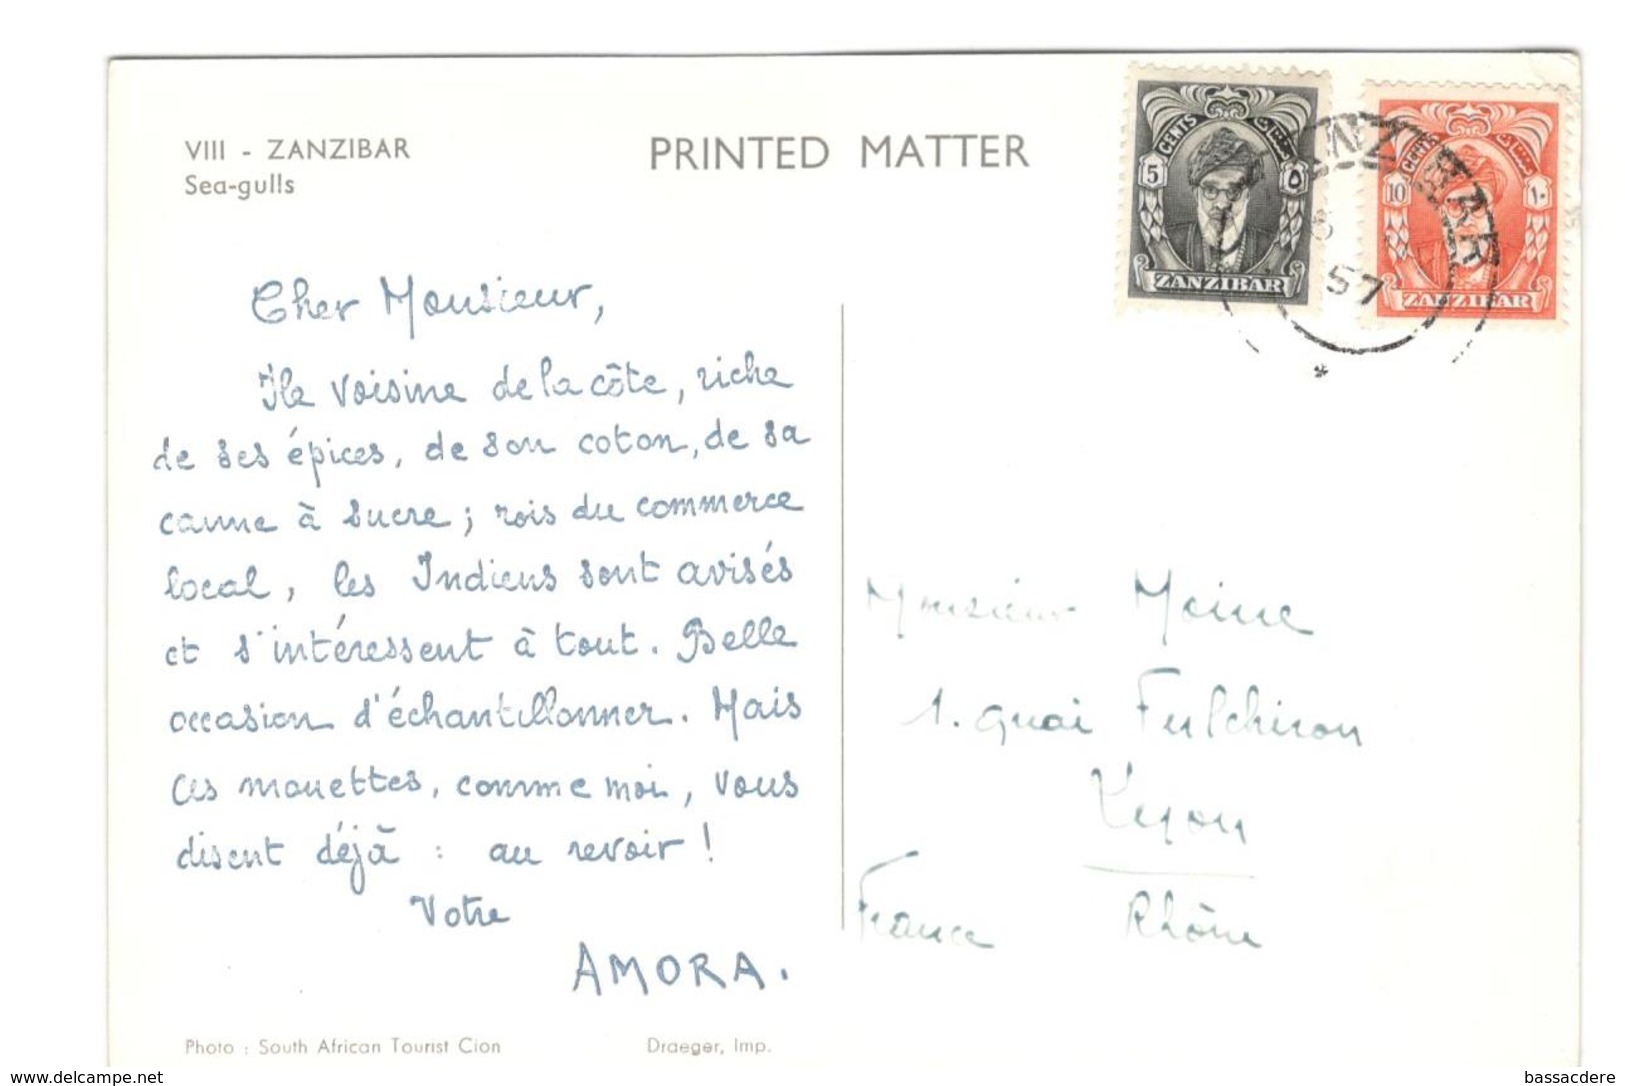 VIII - ZANZIBAR
Sea-gulls
PRINTED MATTER
CENTS
5
٥
ZANZIBAR
CENTS
10
١٠
ZANZIBAR
ZANZIBAR
57
Cher Monsieur,
Ile voisine de la côte, riche
de ses épices, de son coton, de sa
canne à sucre ; rois du commerce
local, les Indiens sont avisés
et s'intéressent à tout. Belle
occasion d'échantillonner. Mais
ces mouettes, comme moi, vous
disent déjà : au revoir !
Votre
AMORA.
Monsieur Moine
1. quai Fulchiron
Lyon
France Rhône
Photo : South African Tourist Cion
Draeger, Imp.
www.delcampe.net
bassacdere